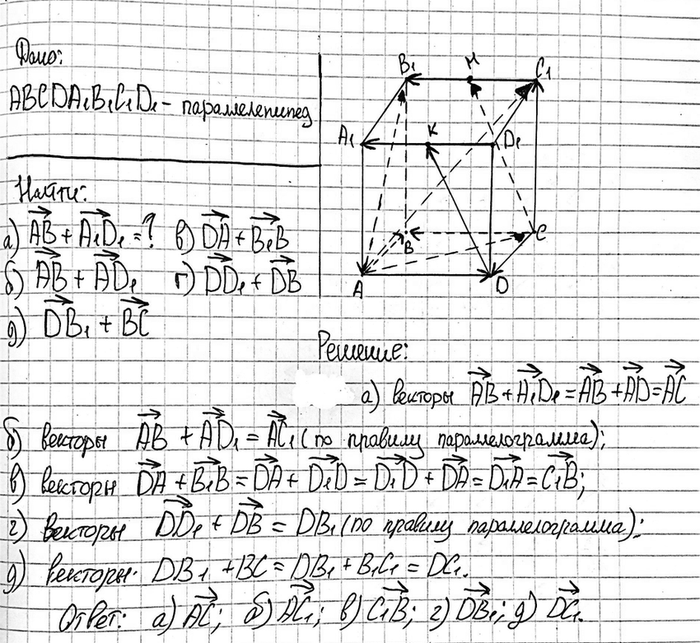 Дано:
ABCDA₁B₁C₁D₁ - параллелепипед
Найти:
а) AB + A₁D₁ = ? в) DA + B₁B
б) AB + AD₁ г) DD₁ + DB
д) DB₁ + BC
B₁ M C₁
A₁ K D₁
B C
A D
Решение:
а) векторы AB + A₁D₁ = AB + AD = AC
б) векторы AB + AD₁ = AC₁ (по правилу параллелограмма);
в) векторы DA + B₁B = DA + D₁D = D₁D + DA = D₁A = C₁B;
г) векторы DD₁ + DB = DB₁ (по правилу параллелограмма);
д) векторы. DB₁ + BC = DB₁ + B₁C₁ = DC₁.
Ответ: а) AC; б) AC₁; в) C₁B; г) DB₁; д) DC₁.